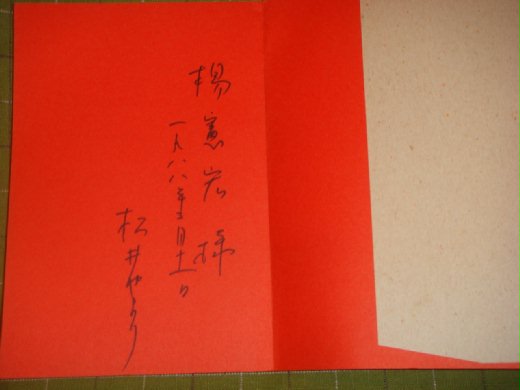 楊憲宏様
一九八八年三月十一日
松井やより